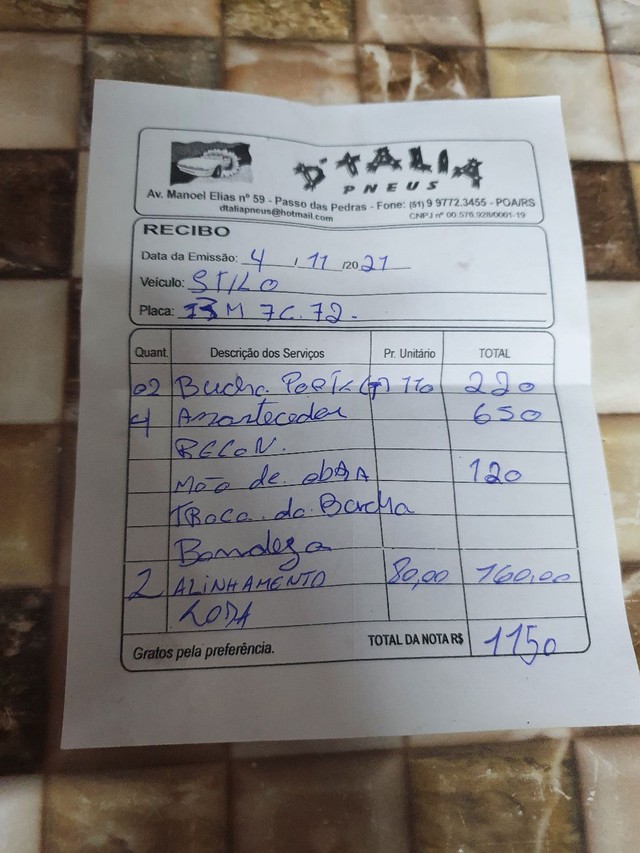 D'TALIA
PNEUS
Av. Manoel Elias nº 59 - Passo das Pedras - Fone: (51) 9 9772.3455 - POA/RS
dtaliapneus@hotmail.com CNPJ nº 00.576.928/0001-19
RECIBO
Data da Emissão: 4 / 11 /2021
Veículo: STILO
Placa: M 7C.72.
Quant. Descrição dos Serviços Pr. Unitário TOTAL
02 Bucha 110 220
4 Amortecedor 650
RECON.
Mão de obRA 120
TROCA da Bucha
Bandeza
2 ALINHAMENTO 80,00 160,00
Gratos pela preferência. TOTAL DA NOTA R$ 1150